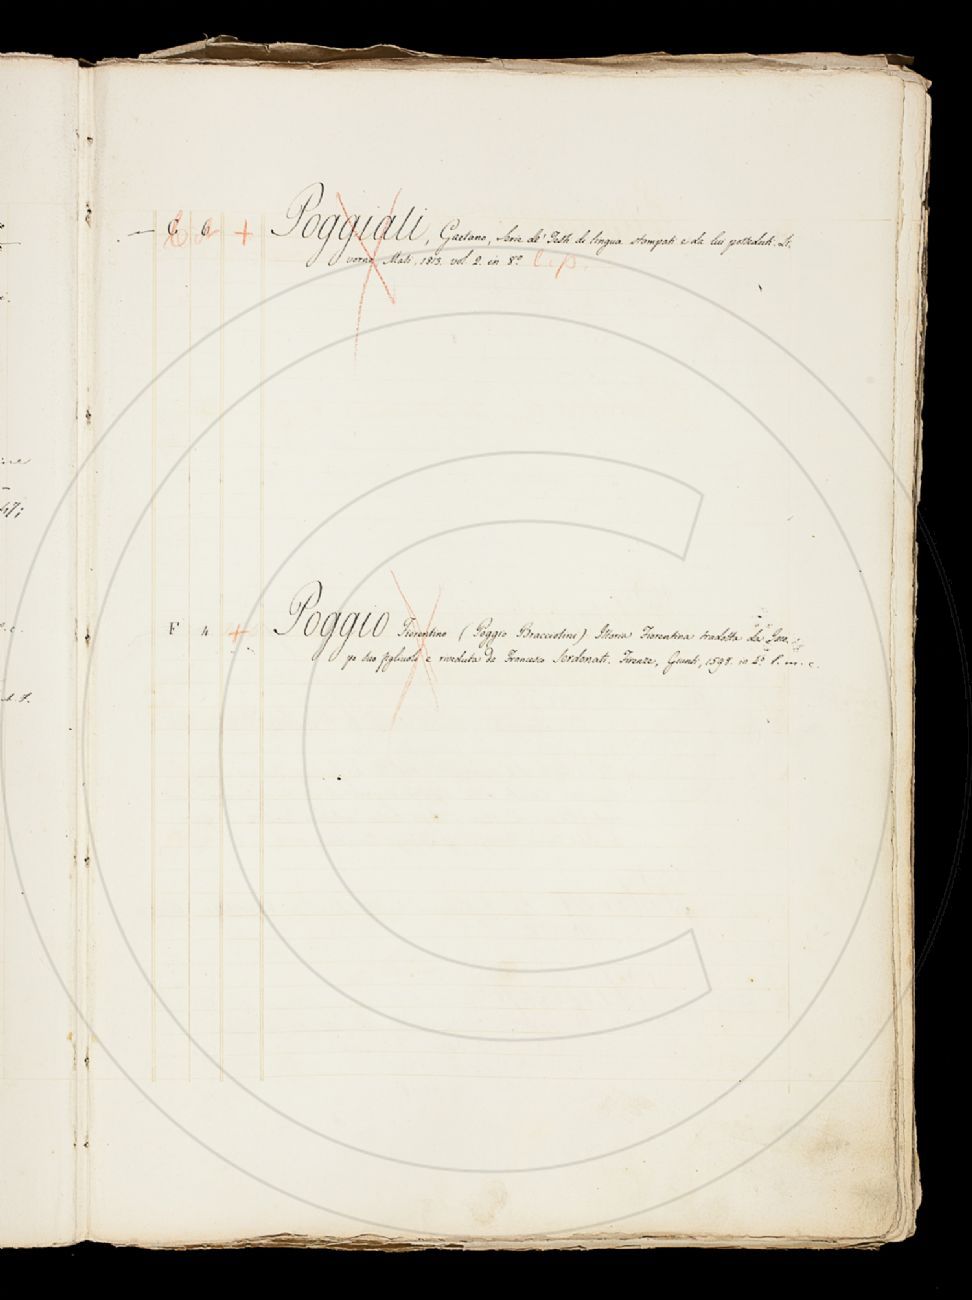 — C 6 + Poggiali, Gaetano, Serie de' Testi di lingua stampati e da lui posseduti. Li
vorno, Masi, 1813. vol. 2. in 8°.
F 4 + Poggio Fiorentino (Poggio Bracciolini) Istoria Fiorentina tradotta da Jaco
po suo figliuolo e riveduta da Francesco Serdonati. Firenze, Giunti, 1598. in 4° l. m. c.